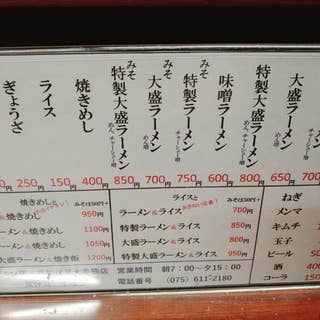 大盛ラーメン めん増
特製大盛ラーメン めん、チャーシュー増
味噌ラーメン
みそ 特製ラーメン チャーシュー増
みそ 大盛ラーメン めん増
みそ 特製大盛ラーメン めん、チャーシュー増
焼きめし
ライス
ぎょうざ
250円 150円 400円 850円 700円 750円 600円 800円 650円
焼きめしと みそは50円+
焼きめし 950円
ラーメン&焼きめし 1100円
ラーメン&焼きめし 1050円
ラーメン&焼き飯 1200円
ライスと みそは50円+
ラーメン&ライス 700円
特製ラーメン&ライス 850円
大盛ラーメン&ライス 800円
特製大盛ラーメン&ライス 950円
ねぎ
メンマ
キムチ
玉子
ビール 50
酒 400
コーラ 150
営業時間 朝7:00〜夕15:00
電話番号 (075)611-2180